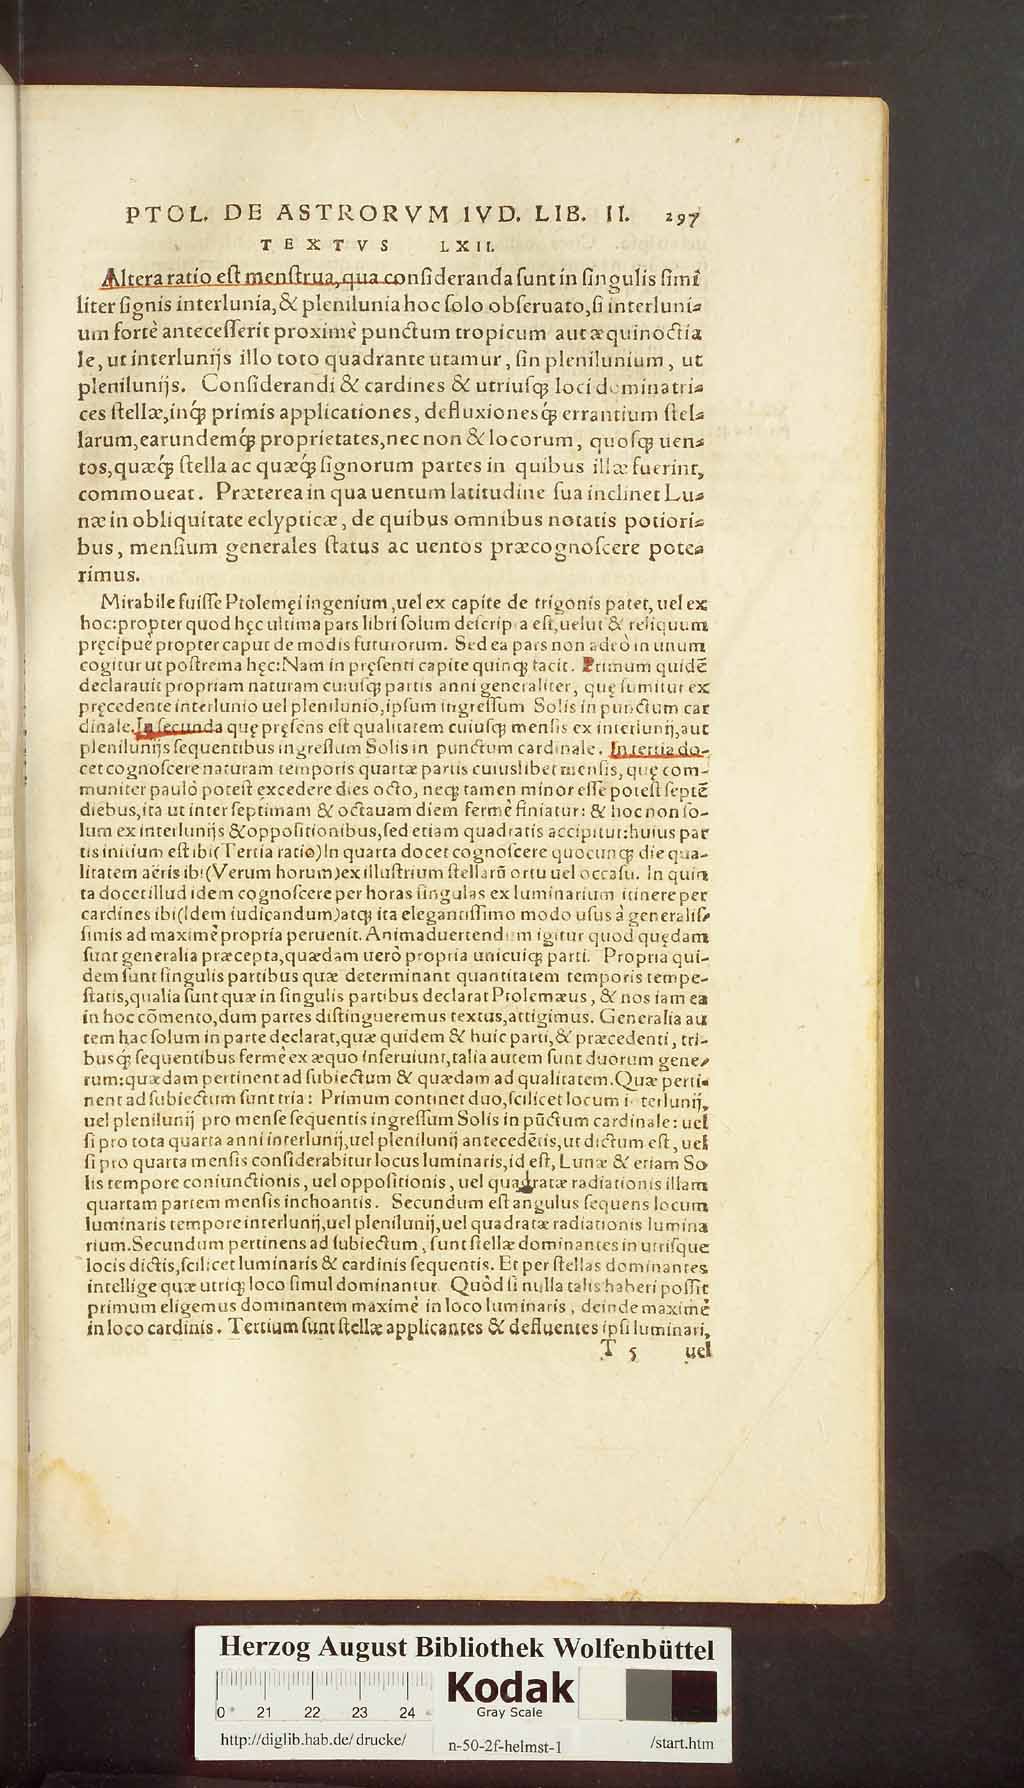 PTOL. DE ASTRORVM IVD. LIB. II. 297
TEXTVS LXII.
Altera ratio est menstrua, qua consideranda sunt in singulis simi
liter signis interlunia, & plenilunia hoc solo obseruato, si interluni-
um fortè antecesserit proximè punctum tropicum aut æquinoctia
le, ut interlunijs illo toto quadrante utamur, sin plenilunium, ut
plenilunijs. Considerandi & cardines & utriusq; loci dominatri-
ces stellæ, inq́; primis applicationes, defluxionesq́; errantium stel-
larum, earundemq́; proprietates, nec non & locorum, quosq; uen-
tos, quæq́; stella ac quæq́; signorum partes in quibus illæ fuerint,
commoueat. Præterea in qua uentum latitudine sua inclinet Lu-
næ in obliquitate eclypticæ, de quibus omnibus notatis potiori-
bus, mensium generales status ac uentos præcognoscere pote-
rimus.
Mirabile fuisse Ptolemęi ingenium, uel ex capite de trigonis patet, uel ex
hoc: propter quod hęc ultima pars libri solum descripta est, uelut & reliquum
pręcipuè propter caput de modis futurorum. Sed ea pars non adeò in unum
cogitur ut postrema hęc: Nam in pręsenti capite quinq; facit. Primum quidē
declarauit propriam naturam cuiusq; partis anni generaliter, quę sumitur ex
pręcedente interlunio uel plenilunio, ipsum ingressum Solis in punctum car
dinale. In secunda quę pręsens est qualitatem cuiusq; mensis ex interlunij, aut
plenilunijs sequentibus ingressum Solis in punctum cardinale. In tertia do-
cet cognoscere naturam temporis quartæ partis cuiuslibet mensis, quę com-
muniter paulò potest excedere dies octo, neq; tamen minor esse potest septē
diebus, ita ut inter septimam & octauam diem fermè finiatur: & hoc non so-
lum ex interlunijs & oppositionibus, sed etiam quadratis accipitur: huius par
tis initium est ibi (Tertia ratio) In quarta docet cognoscere quocunq; die qua-
litatem aëris ibi (Verum horum) ex illustrium stellarū ortu uel occasu. In quin
ta docet illud idem cognoscere per horas singulas ex luminarium itinere per
cardines ibi (Idem iudicandum) atq; ita elegantissimo modo usus à generalis-
simis ad maximè propria peruenit. Animaduertendum igitur quod quędam
sunt generalia præcepta, quædam uerò propria unicuiq; parti. Propria qui-
dem sunt singulis partibus quæ determinant quantitatem temporis tempe-
statis, qualia sunt quæ in singulis partibus declarat Ptolemæus, & nos iam ea
in hoc cōmento, dum partes distingueremus textus, attigimus. Generalia au
tem hac solum in parte declarat, quæ quidem & huic parti, & præcedenti, tri-
busq; sequentibus fermè ex æquo inseruiunt, talia autem sunt duorum gene-
rum: quædam pertinent ad subiectum & quædam ad qualitatem. Quæ perti-
nent ad subiectum sunt tria: Primum continet duo, scilicet locum interlunij,
uel plenilunij pro mense sequentis ingressum Solis in pūctum cardinale: uel
si pro tota quarta anni interlunij, uel plenilunij antecedētis, ut dictum est, uel
si pro quarta mensis considerabitur locus luminaris, id est, Lunæ & etiam So
lis tempore coniunctionis, uel oppositionis, uel quadratæ radiationis illam
quartam partem mensis inchoantis. Secundum est angulus sequens locum
luminaris tempore interlunij, uel plenilunij, uel quadratæ radiationis lumina
rium. Secundum pertinens ad subiectum, sunt stellæ dominantes in utrisque
locis dictis, scilicet luminaris & cardinis sequentis. Et per stellas dominantes
intellige quæ utriq; loco simul dominantur. Quòd si nulla talis haberi possit
primum eligemus dominantem maximè in loco luminaris, deinde maximè
in loco cardinis. Tertium sunt stellæ applicantes & defluentes ipsi luminari,
T 5 uel
Herzog August Bibliothek Wolfenbüttel
Kodak
Gray Scale
0 21 22 23 24
http://diglib.hab.de/drucke/ n-50-2f-helmst-1 /start.htm